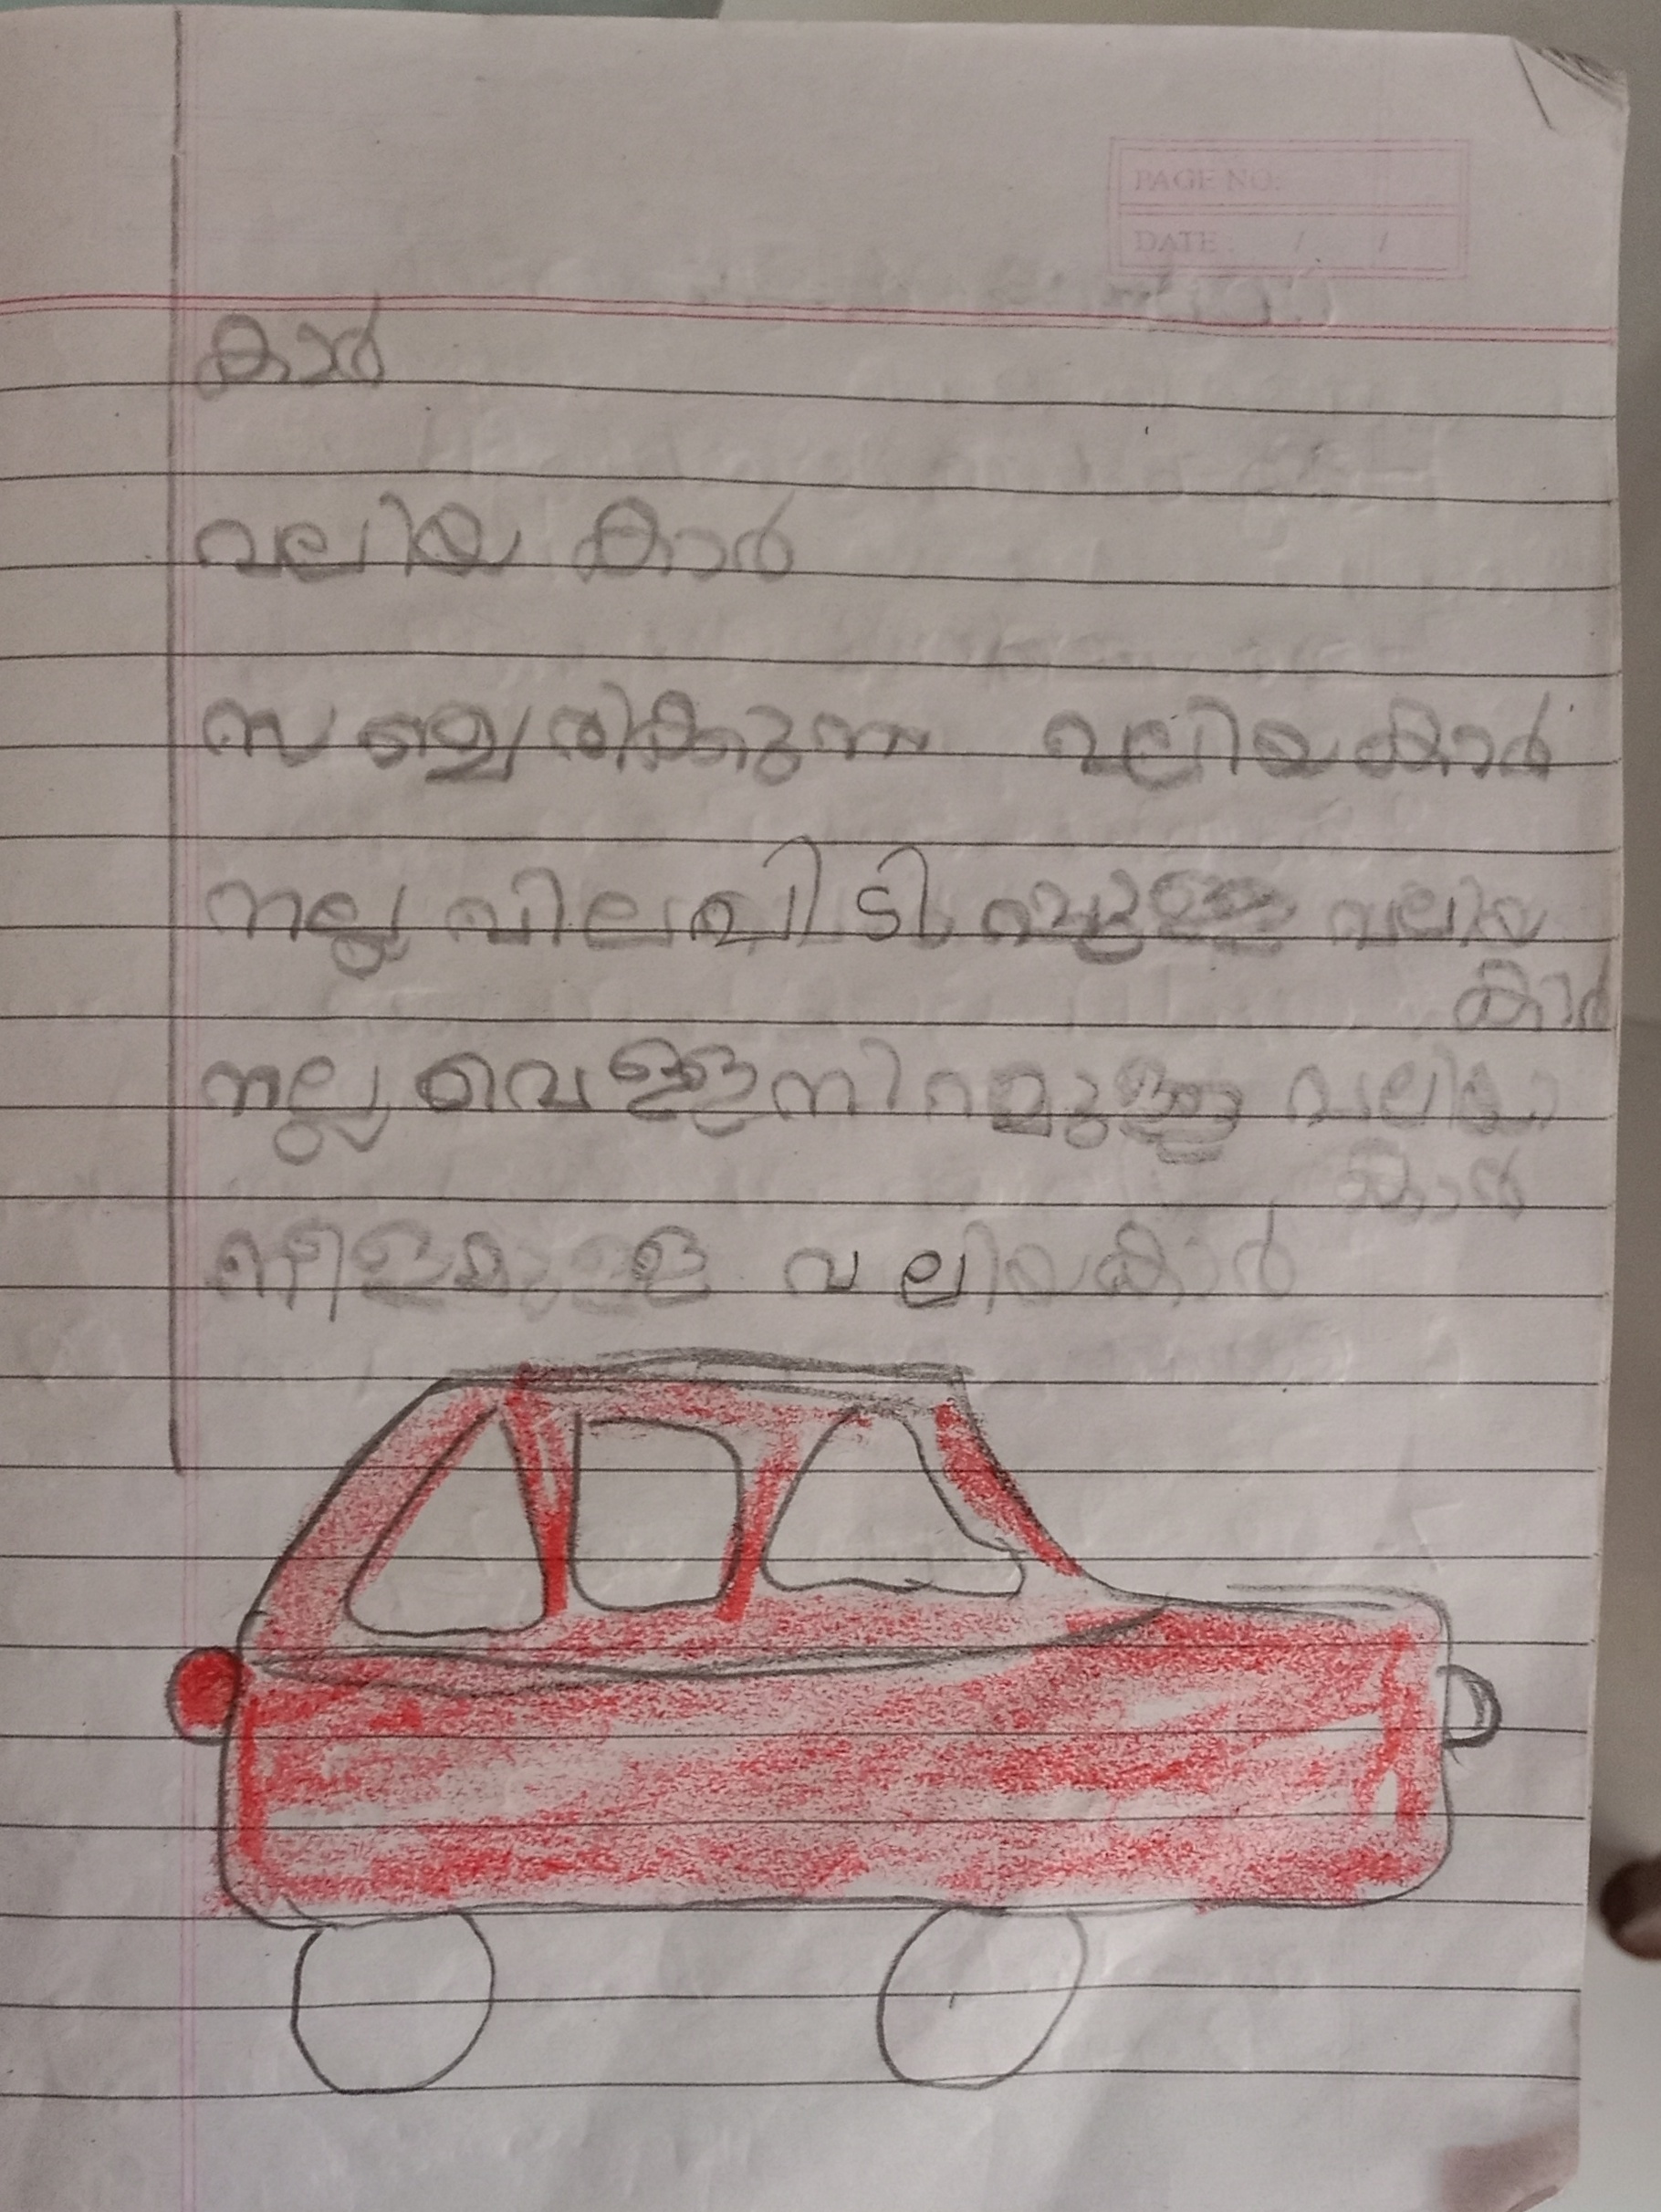 PAGE NO:
DATE: / /
കാർ
വലിയ കാർ
സഞ്ചെരിക്കുന്ന വലിയകാർ
നല്ല വിലപിടിപ്പുള്ള വലിയ
കാർ
നല്ല വെള്ളനിറമുള്ള വലിയ
കാർ
നീളമുള്ള വലിയകാർ